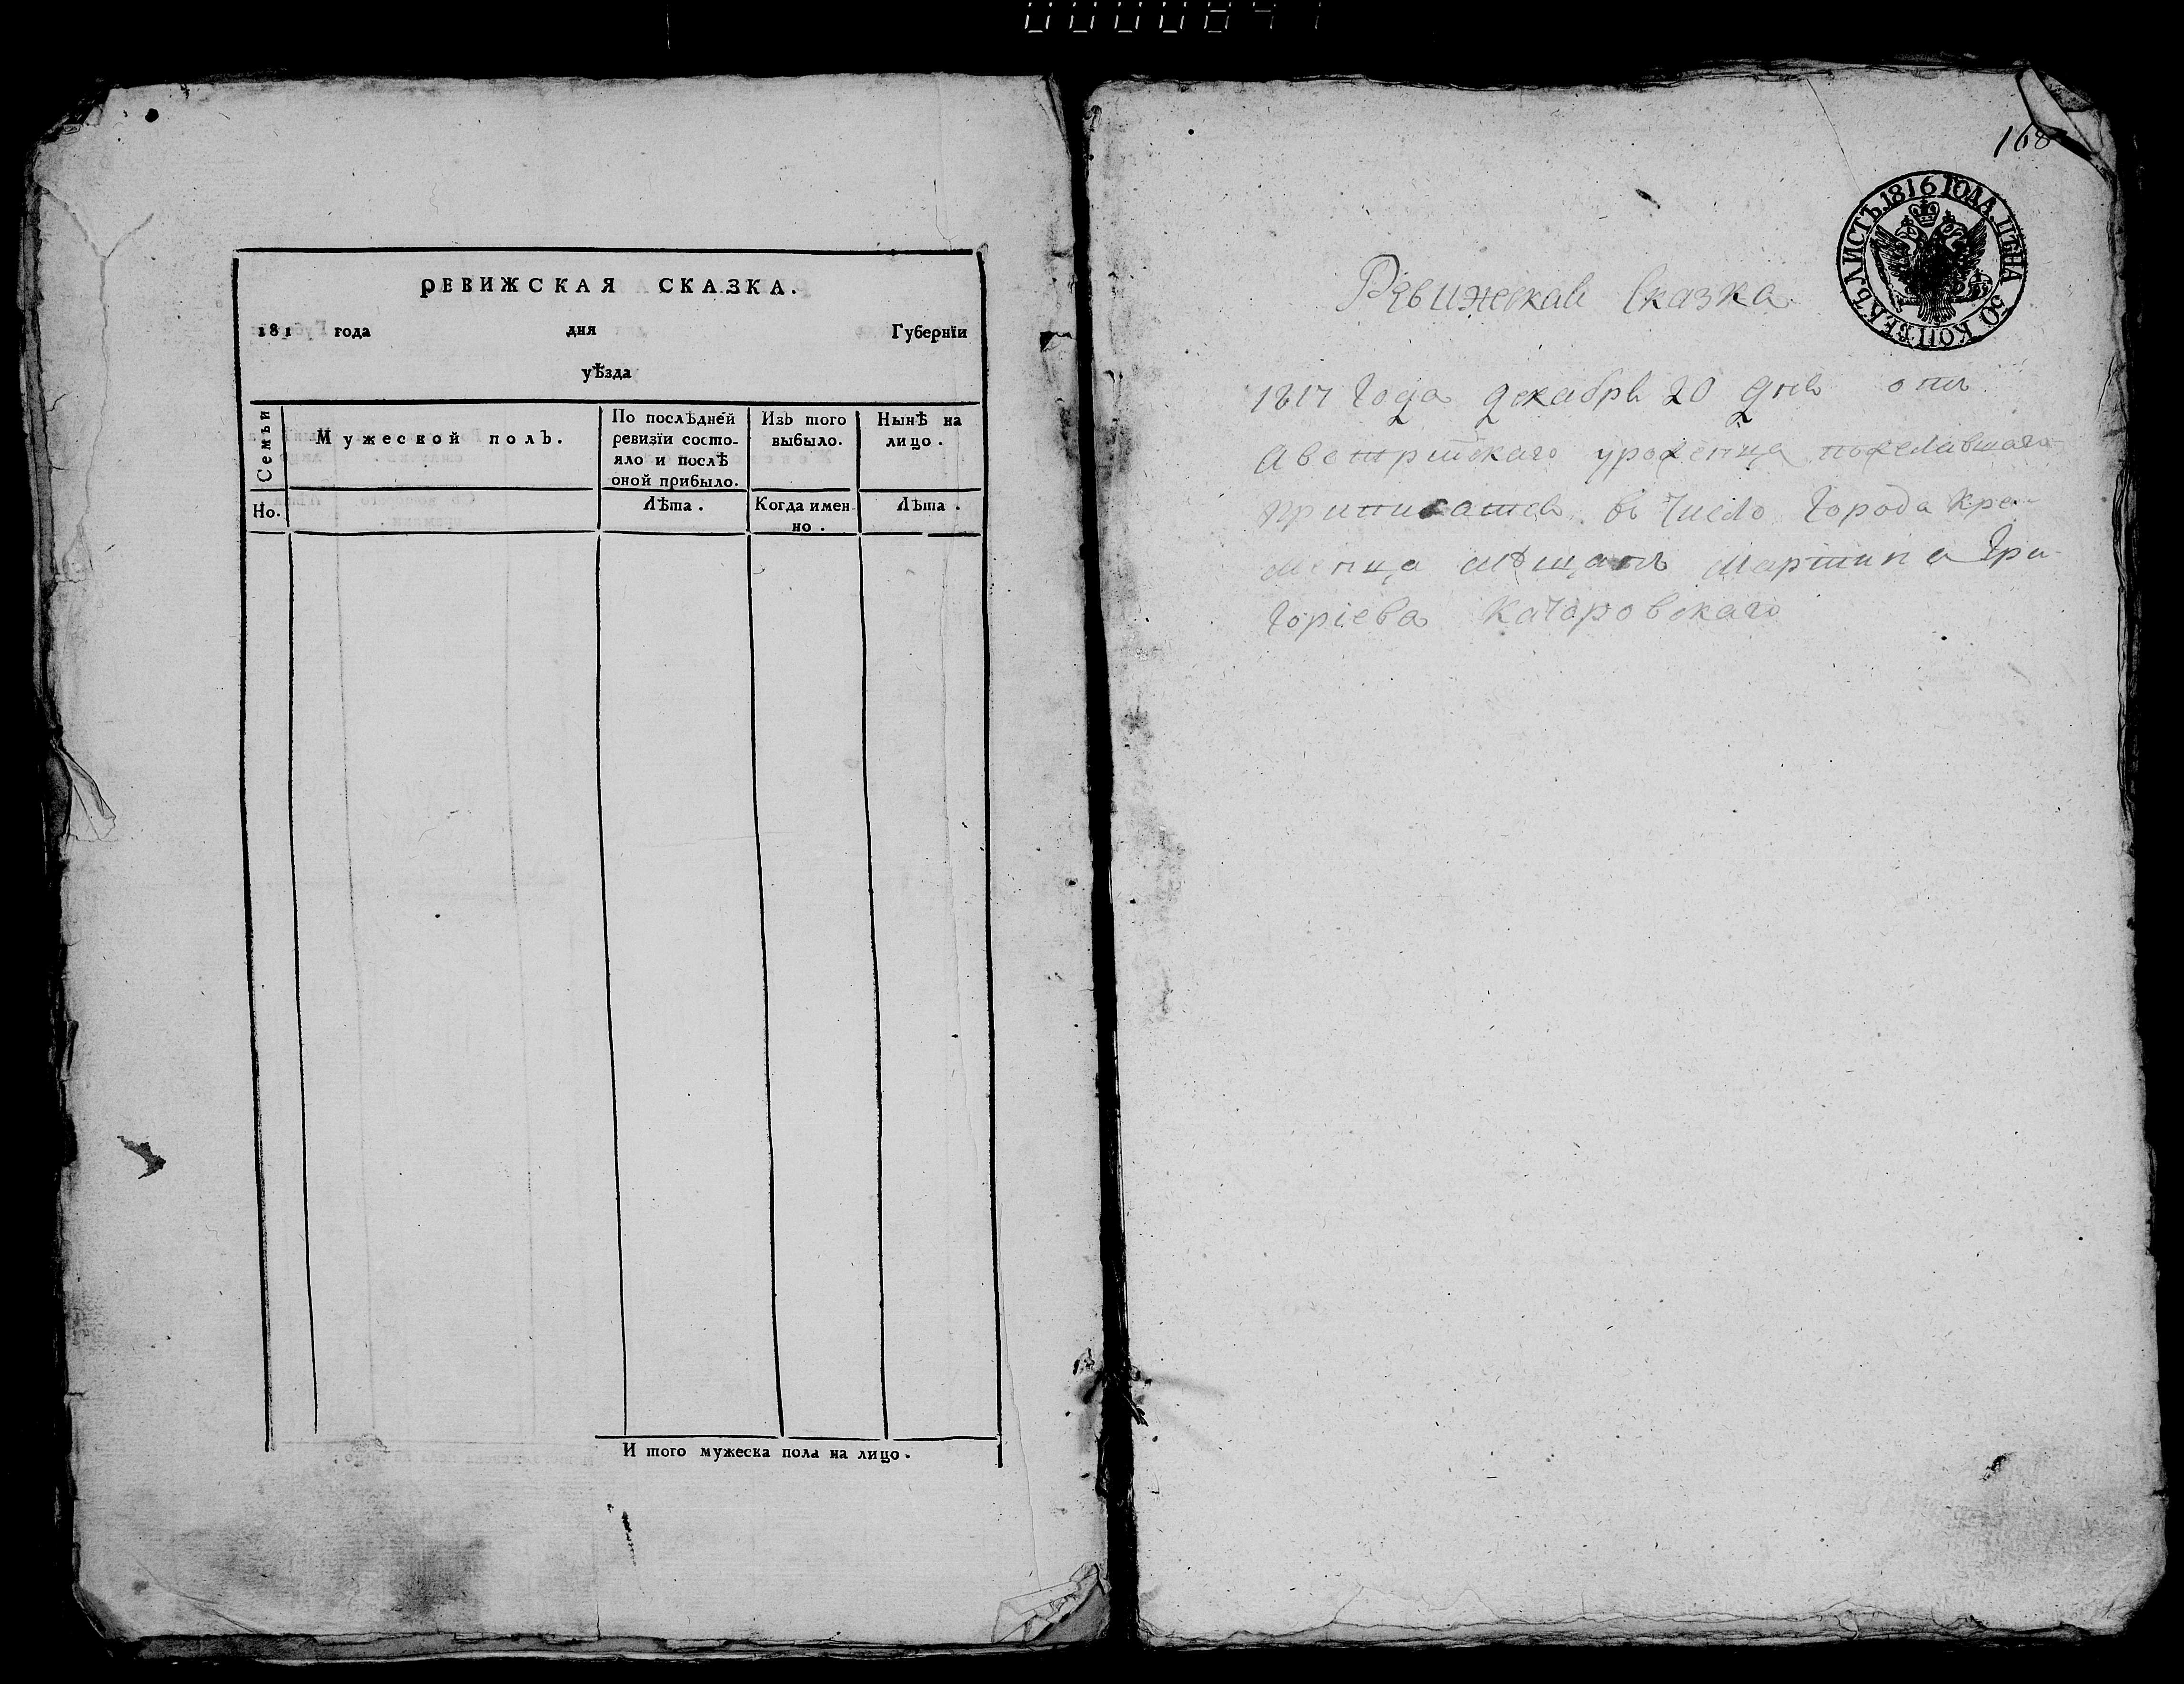 0000841
РЕВИЖСКАЯ СКАЗКА.
181 года дня Губернїи
уѣзда
Семьи
Мужеской полъ.
По послѣдней
ревизїи состо-
яло и послѣ
оной прибыло.
Изъ того
выбыло.
Нынѣ на
лицо.
Но.
Лѣта.
Когда имен-
но.
Лѣта.
И того мужеска пола на лицо.
168
ЛИСТЪ 1816 ГОДА ЦѢНА 50 КОПѢЕКЪ
Ревижская Сказка
1817 Года декабря 20 дня о пл
Австрийскаго уроженца пожелавшаго
приписатся въ Число Города Кре-
менца мѣщанъ Мартина Гри-
горіева Качоровскаго